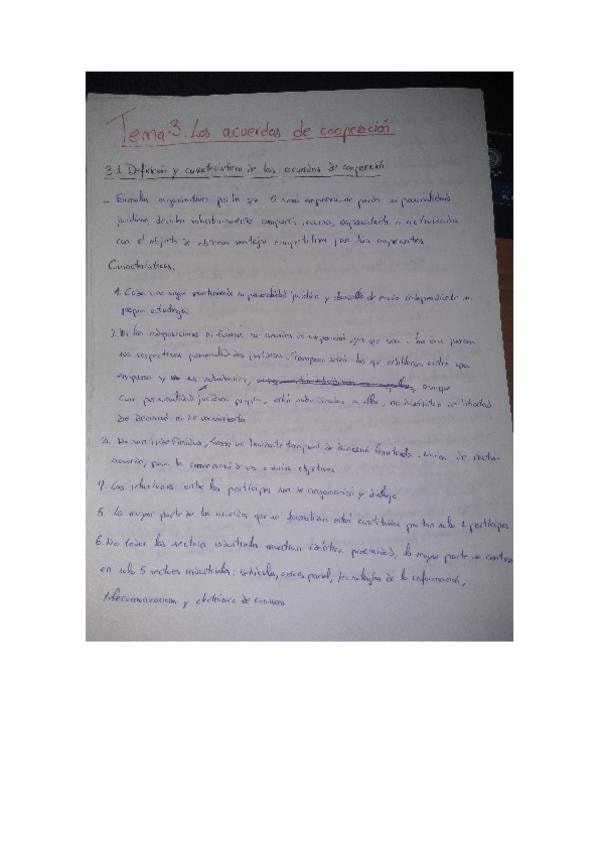 Tema-3. Los acuerdos de cooperación
3.1 Definición y características de los acuerdos de cooperación
- Fórmulas organizativas por la que 2 o más empresas, sin perder su personalidad
jurídica, deciden voluntariamente compartir recursos, capacidades o actividades
con el objeto de obtener ventajas competitivas para los
Características:
1. Cada una sigue manteniendo su personalidad jurídica y de modo independiente su
propia estrategia
2. Ni las adquisiciones ni fusiones son acuerdos de cooperación, ya que una o las dos pierden
sus respectivas personalidades jurídicas. Tampoco las que establecen entre una
empresa y sus subsidiarias, aunque
con personalidad jurídica propia, están subordinadas a ellas, no disfrutan de libertad
de decisión ni de
3. No son indefinidos, tienen un horizonte temporal de
acuerdo, para la consecución de uno o varios objetivos
4. Las relaciones entre los partícipes son de negociación y diálogo
5. La mayor parte de los acuerdos que se formalizan están constituidos por tan solo 2 partícipes
6. No todos los sectores industriales muestran idéntica la mayor parte se
en solo 5 sectores industriales: vehículos, aeroespacial, tecnologías de la información,
telecomunicaciones y electrónica de consumo